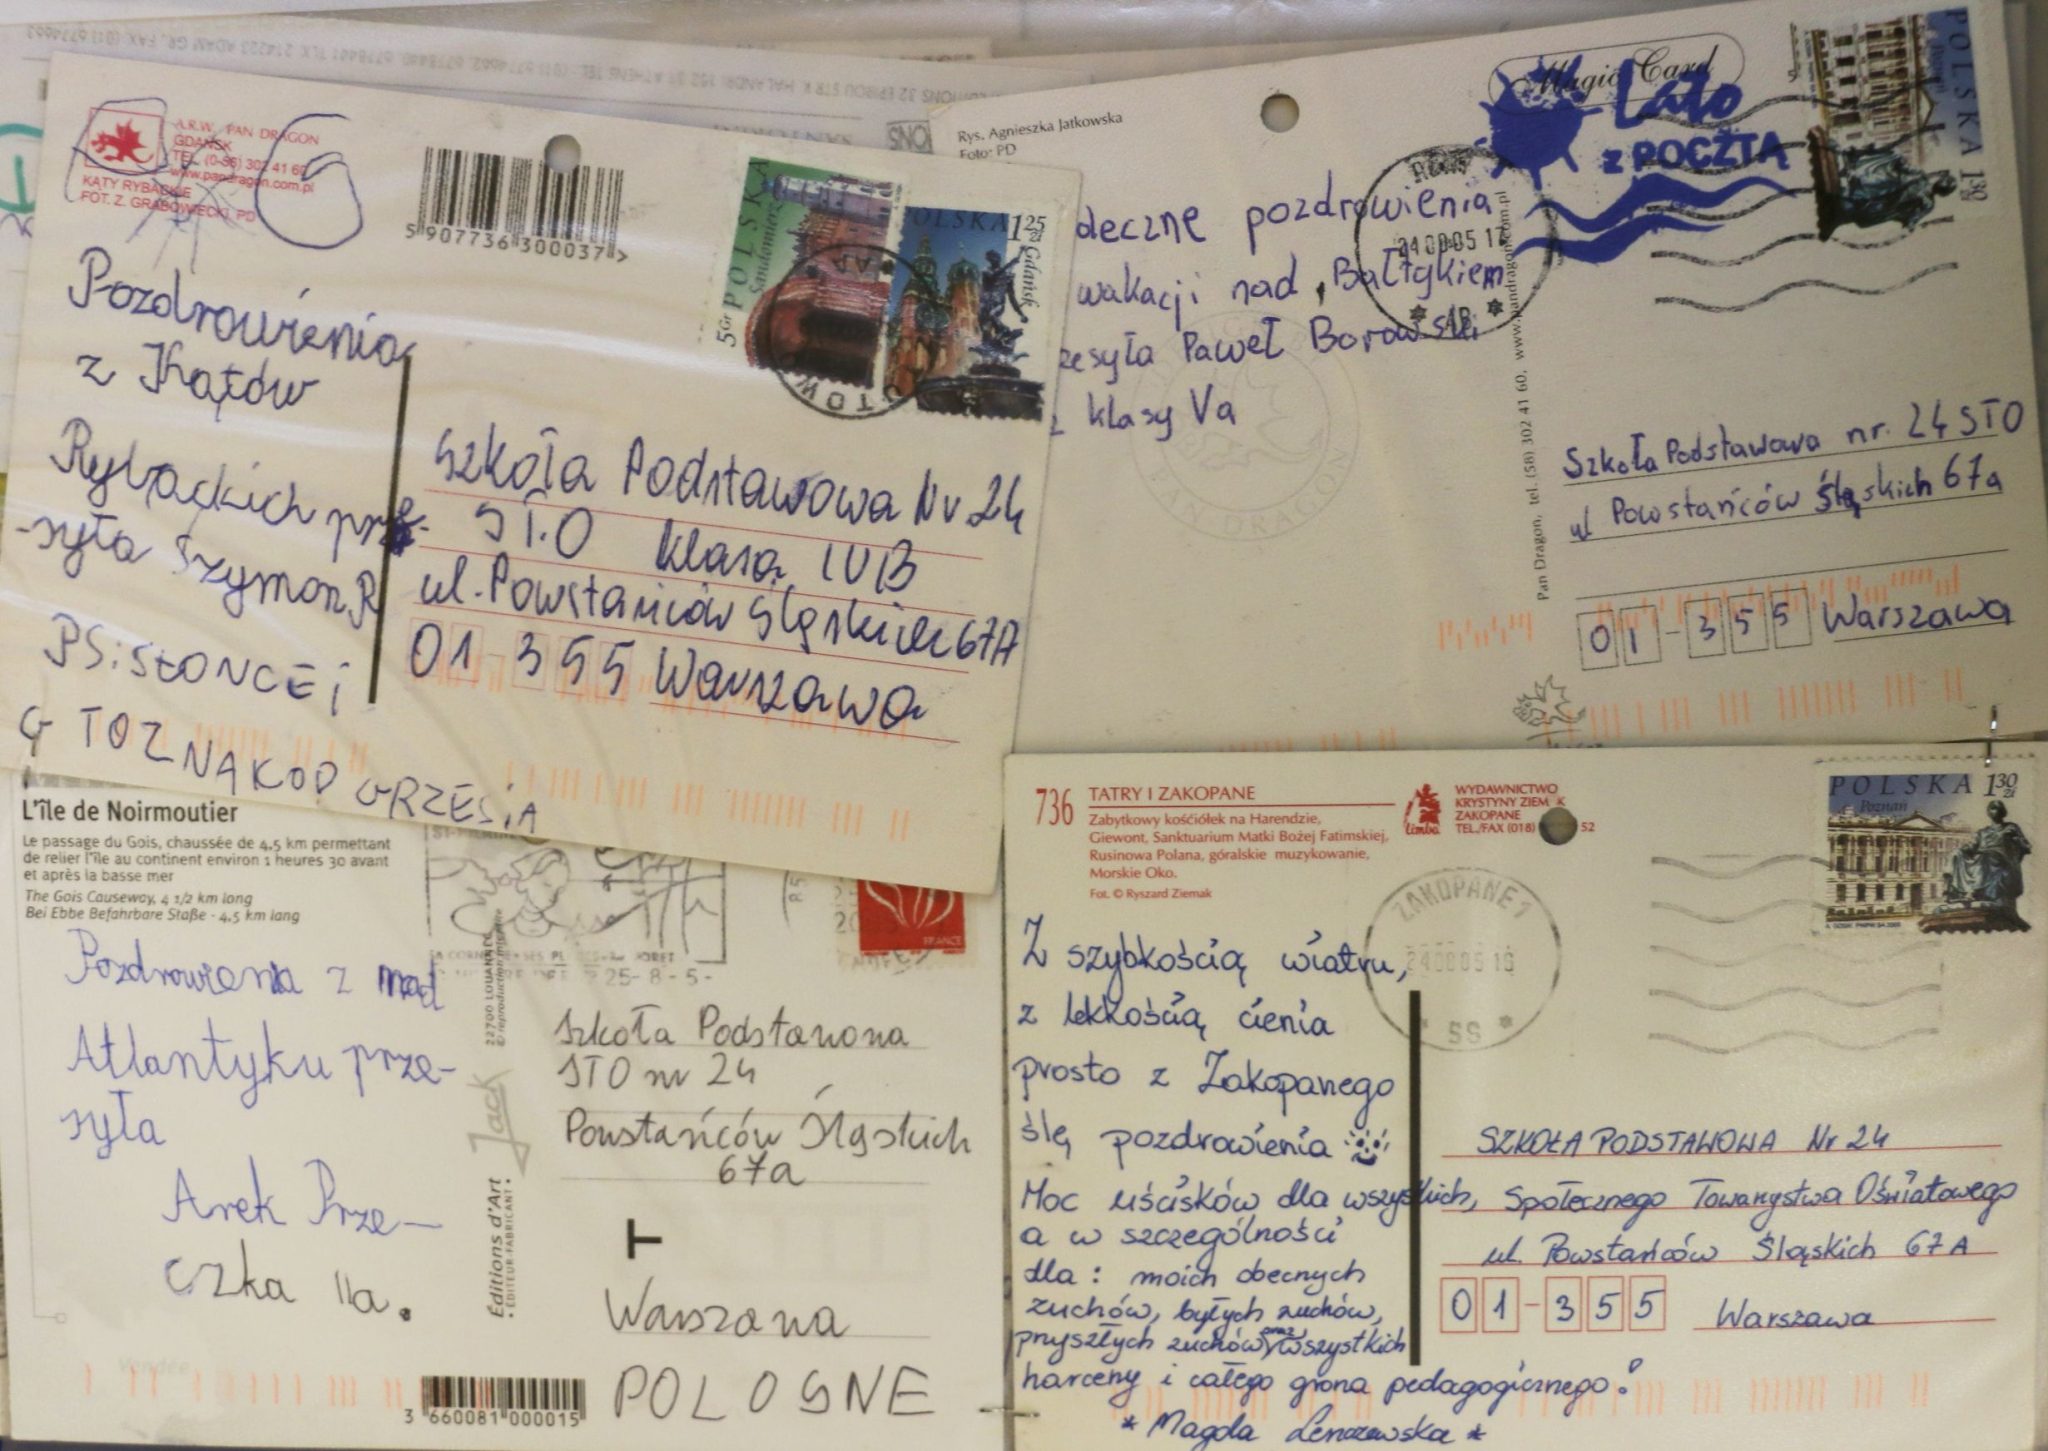 A.R.W. PAN DRAGON
GDAŃSK
TEL. (0-58) 302 41 60
www.pandragon.com.pl
KĄTY RYBACKIE
FOT. Z. GRABOWIECKI, PD
5 907736 300037 >
POLSKA
Sandomierz
5 Gr
POLSKA 1 25 zł
Gdańsk
Pozdrowienia
z Kątów
Rybackich prze-
-syła Szymon R
PS: SŁONCE i
G TO ZNAK OD GRZESIA
Szkoła Podstawowa Nr 24
STO klasa IVB
ul. Powstańców Śląskich 67A
01-355 Warszawa
Rys. Agnieszka Jatkowska
Foto: PD
Magic Card
Lato
z POCZTĄ
POLSKA 1 30 zł
deczne pozdrowienia
wakacji nad Bałtykiem
zesyła Paweł Borowski
z klasy Va
PAN DRAGON
Pan Dragon, tel. (58) 302 41 60, www.pandragon.com.pl
Szkoła Podstawowa nr. 24 STO
ul Powstańców Śląskich 67a
01-355 Warszawa
L'île de Noirmoutier
Le passage du Gois, chaussée de 4,5 km permettant
de relier l'île au continent environ 1 heures 30 avant
et après la basse mer
The Gois Causeway, 4 1/2 km long
Bei Ebbe Befahrbare Staße - 4,5 km lang
25-8-5-
FRANCE
Pozdrowienia z nad
Atlantyku prze-
syła
Arek Prze-
czka IIa.
22700 LOUANNEC
© reproduction interdite
Jack
Éditions d'Art
• ÉDITEUR-FABRICANT •
Szkoła Podstawowa
STO nr 24
Powstańców Śląskich
67a
T
Warszawa
POLOGNE
Vendée
3 660081 000015
736 TATRY I ZAKOPANE
Zabytkowy kościółek na Harendzie,
Giewont, Sanktuarium Matki Bożej Fatimskiej,
Rusinowa Polana, góralskie muzykowanie,
Morskie Oko.
Fot. © Ryszard Ziemak
limba
WYDAWNICTWO
KRYSTYNY ZIEM K
ZAKOPANE
TEL./FAX (018) 52
ZAKOPANE 1
240805 16
* SS *
POLSKA 1 30 zł
Poznań
Z szybkością wiatru,
z lekkością cienia
prosto z Zakopanego
ślę pozdrowienia
Moc uścisków dla wszystkich,
a w szczególności
dla: moich obecnych
zuchów, byłych zuchów,
przyszłych zuchów oraz wszystkich
harcerzy i całego grona pedagogicznego!
* Magda Lenczewska *
SZKOŁA PODSTAWOWA Nr 24
Społecznego Towarzystwa Oświatowego
ul. Powstańców Śląskich 67A
01-355 Warszawa